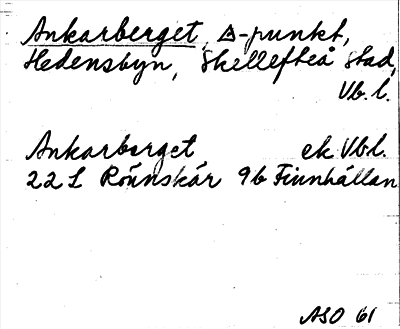 Ankarberget, △-punkt,
Hedensbyn, Skellefteå stad,
Vb. l.
Ankarberget ek Vbl.
22 L Rönnskär 9b Finnhällan
ASO 61